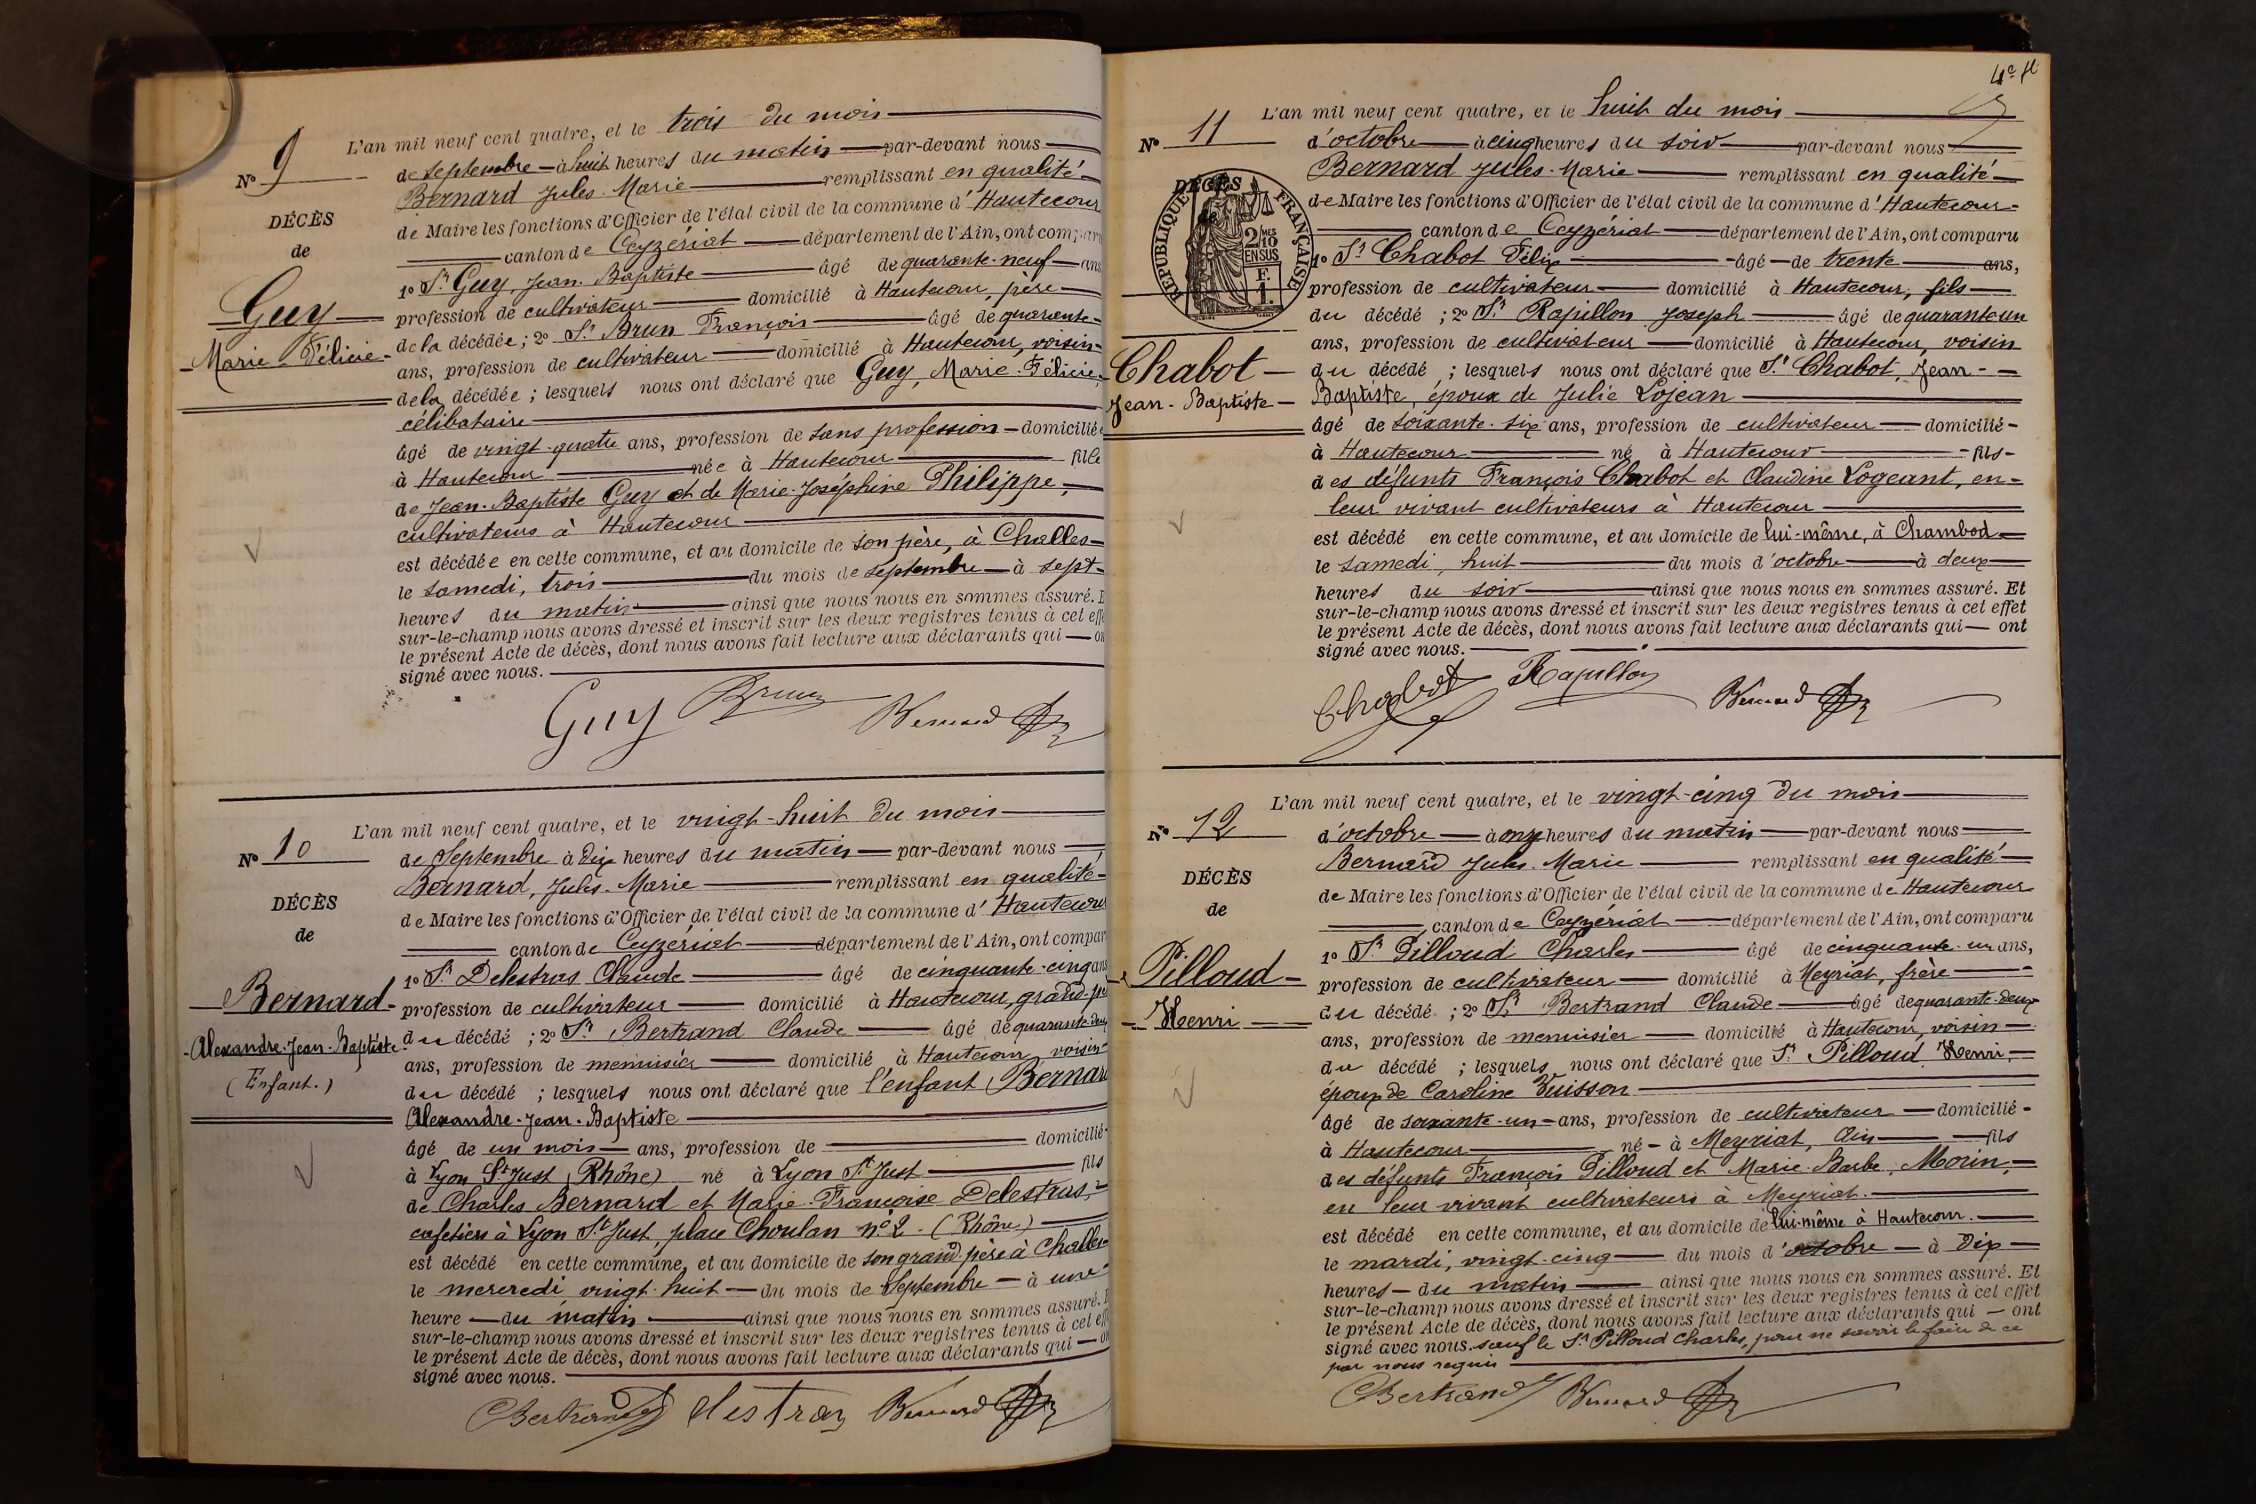 N° 9
DÉCÈS
de
Guy
Marie-Félicie
L'an mil neuf cent quatre, et le trois du mois
de septembre à huit heures du matin par-devant nous
Bernard Jules-Marie remplissant en qualité
de Maire les fonctions d'Officier de l'état civil de la commune d'Hautecour
canton de Ceyzériat département de l'Ain, ont comparu
1° Sr Guy, Jean-Baptiste âgé de quarante-neuf ans
profession de cultivateur domicilié à Hautecour, père
de la décédée ; 2° Sr Brun François âgé de quarante
ans, profession de cultivateur domicilié à Hautecour, voisin
de la décédée ; lesquels nous ont déclaré que Guy, Marie-Félicie
célibataire
âgé de vingt-quatre ans, profession de sans profession domiciliée
à Hautecour née à Hautecour fille
de Jean-Baptiste Guy et de Marie-Joséphine Philippe,
cultivateurs à Hautecour
est décédée en cette commune, et au domicile de son père, à Challes
le samedi, trois du mois de septembre à sept
heures du matin ainsi que nous nous en sommes assuré. E
sur-le-champ nous avons dressé et inscrit sur les deux registres tenus à cet effe
le présent Acte de décès, dont nous avons fait lecture aux déclarants qui on
signé avec nous.
Guy Brun Bernard
N° 10
DÉCÈS
de
Bernard
Alexandre-Jean-Baptiste
(Enfant.)
L'an mil neuf cent quatre, et le vingt-huit du mois
de Septembre à dix heures du matin par-devant nous
Bernard, Jules-Marie remplissant en qualité
de Maire les fonctions d'Officier de l'état civil de la commune d'Hautecour
canton de Ceyzériat département de l'Ain, ont compar
1° Sr Delestras Claude âgé de cinquante-cinq ans
profession de cultivateur domicilié à Hautecour, grand-père
du décédé ; 2° Sr Bertrand Claude âgé de quarante-deux
ans, profession de menuisier domicilié à Hautecour, voisin
du décédé ; lesquels nous ont déclaré que l'enfant, Bernard
Alexandre-Jean-Baptiste
âgé de un mois ans, profession de domicilié
à Lyon St Just, (Rhône) né à Lyon St Just fils
de Charles Bernard et Marie-Françoise Delestras,
cafetiers à Lyon St Just, place Choulan n° 2. (Rhône)
est décédé en cette commune, et au domicile de son grand-père à Challes
le mercredi vingt-huit du mois de Septembre à une
heure du matin ainsi que nous nous en sommes assuré. E
sur-le-champ nous avons dressé et inscrit sur les deux registres tenus à cet eff
le présent Acte de décès, dont nous avons fait lecture aux déclarants qui on
signé avec nous.
Bertrand Delestras Bernard
4e fl
N° 11
DÉCÈS
RÉPUBLIQUE FRANÇAISE
2 MES
10
EN SUS
F.
1.
Chabot
Jean-Baptiste
L'an mil neuf cent quatre, et le huit du mois
d'octobre à cinq heures du soir par-devant nous
Bernard Jules-Marie remplissant en qualité
de Maire les fonctions d'Officier de l'état civil de la commune d'Hautecour
canton de Ceyzériat département de l'Ain, ont comparu
1° Sr Chabot Félix âgé de trente ans,
profession de cultivateur domicilié à Hautecour, fils
du décédé ; 2° Sr Rapillon Joseph âgé de quarante un
ans, profession de cultivateur domicilié à Hautecour, voisin
du décédé ; lesquels nous ont déclaré que Sr Chabot, Jean-
Baptiste, époux de Julie Lojean
âgé de soixante-six ans, profession de cultivateur domicilié
à Hautecour né à Hautecour fils
des défunts François Chabot et Claudine Logeant, en
leur vivant cultivateurs à Hautecour
est décédé en cette commune, et au domicile de lui-même, à Chambod
le samedi, huit du mois d'octobre à deux
heures du soir ainsi que nous nous en sommes assuré. Et
sur-le-champ nous avons dressé et inscrit sur les deux registres tenus à cet effet
le présent Acte de décès, dont nous avons fait lecture aux déclarants qui ont
signé avec nous.
Chabot Rapillon Bernard
N° 12
DÉCÈS
de
Pilloud
Henri
L'an mil neuf cent quatre, et le vingt-cinq du mois
d'octobre à onze heures du matin par-devant nous
Bernard Jules-Marie remplissant en qualité
de Maire les fonctions d'Officier de l'état civil de la commune de Hautecour
canton de Ceyzériat département de l'Ain, ont comparu
1° Sr Pilloud Charles âgé de cinquante-un ans,
profession de cultivateur domicilié à Meyriat, frère
du décédé ; 2° Sr Bertrand Claude âgé de quarante-deux
ans, profession de menuisier domicilié à Hautecour, voisin
du décédé ; lesquels nous ont déclaré que Sr Pilloud Henri,
époux de Caroline Buisson
âgé de soixante-un ans, profession de cultivateur domicilié
à Hautecour né à Meyriat, Ain fils
des défunts François Pilloud et Marie-Barbe Morin,
en leur vivant cultivateurs à Meyriat.
est décédé en cette commune, et au domicile de lui-même à Hautecour.
le mardi, vingt-cinq du mois d'octobre à dix
heures du matin ainsi que nous nous en sommes assuré. Et
sur-le-champ nous avons dressé et inscrit sur les deux registres tenus à cet effet
le présent Acte de décès, dont nous avons fait lecture aux déclarants qui ont
signé avec nous. sauf le Sr Pilloud Charles, pour ne savoir le faire de ce
par nous requis
Bertrand Bernard